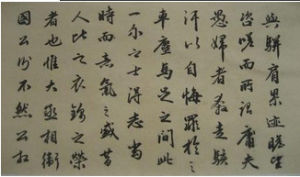 與駢肩累迹瞻望
咨嗟而所謂庸夫
愚婦者奔走駭
汗以自悔罪於
車塵馬足之間此
一介之士得志當
時而意氣之盛昔
人比之衣錦之榮
者也惟大丞相衛
國公則不然公相